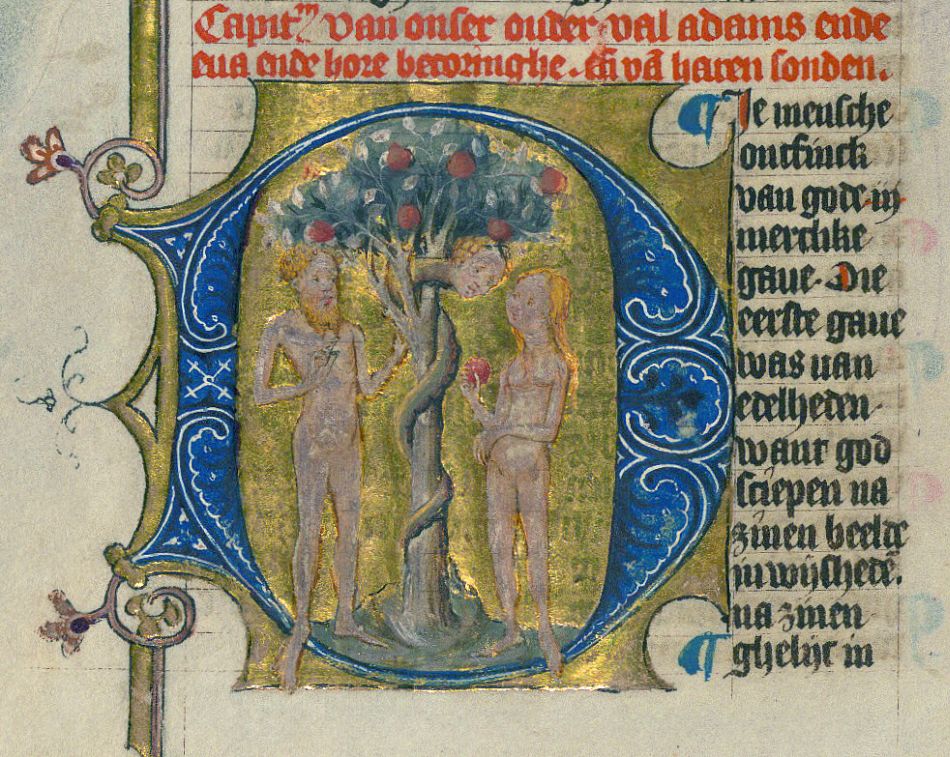 Capitm van onser ouder val adams ende
eua ende hore becoringhe. en vā haren sonden.
¶ Ie mensche
ontfinck
van gode in
merclike
gaue. Die
eerste gaue
was uan
edelheden
want god
sciepen na
zinen beelde
in wijshede.
na zinen
¶ ghelijc in